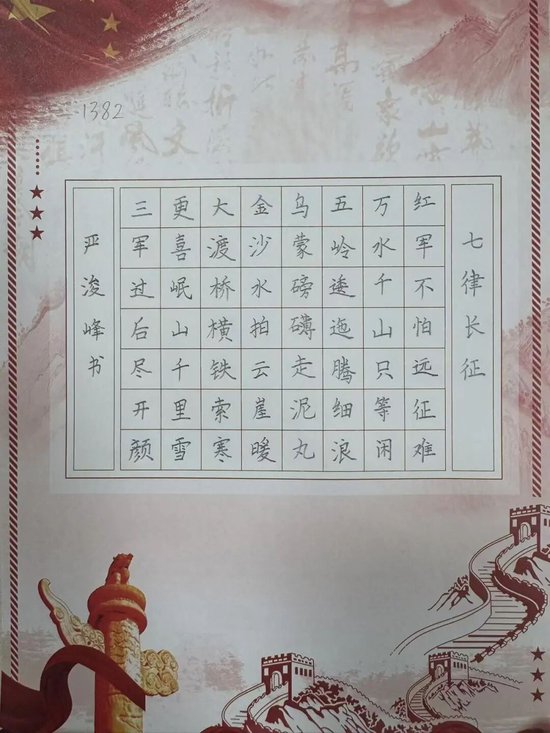 1382
七律长征
红军不怕远征难
万水千山只等闲
五岭逶迤腾细浪
乌蒙磅礴走泥丸
金沙水拍云崖暖
大渡桥横铁索寒
更喜岷山千里雪
三军过后尽开颜
严浚峰书